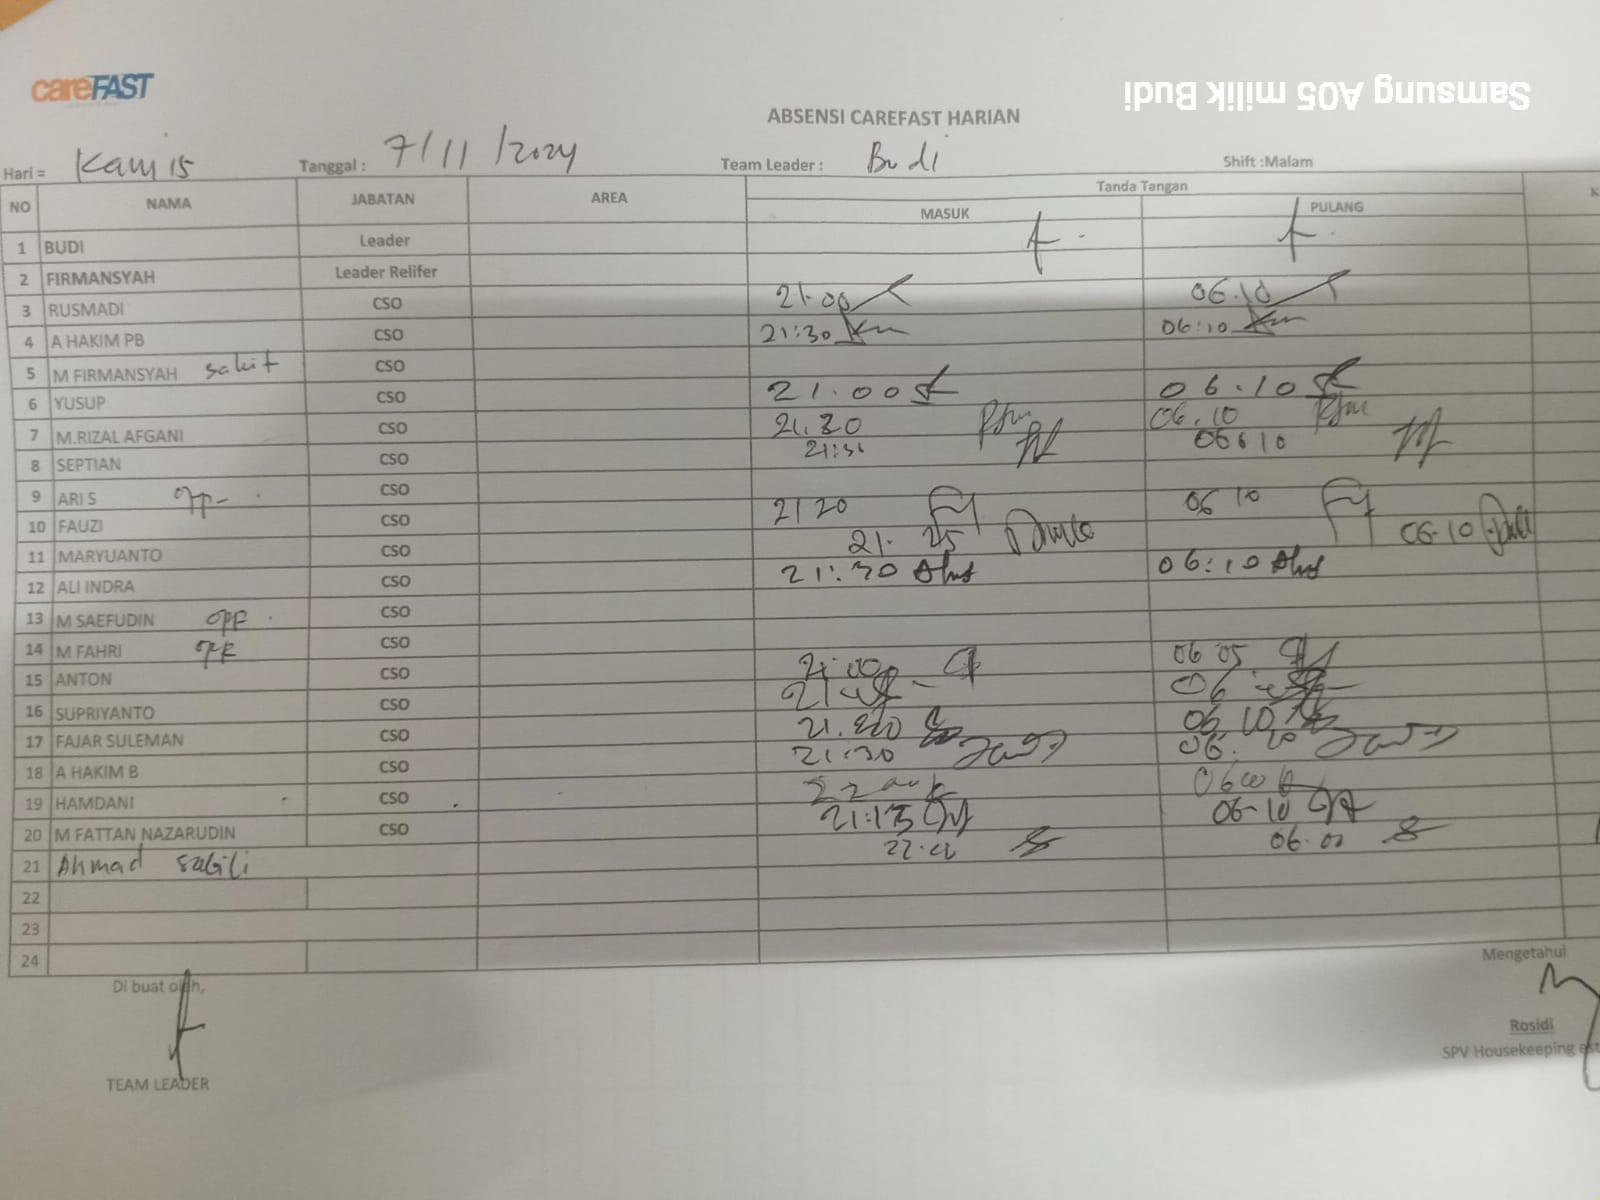 careFAST
Samsung A05 milik Budi
ABSENSI CAREFAST HARIAN
Hari = Kamis Tanggal : 7/11/2024 Team Leader : Budi Shift :Malam
NO NAMA JABATAN AREA Tanda Tangan K
MASUK PULANG
1 BUDI Leader
2 FIRMANSYAH Leader Relifer
3 RUSMADI CSO 21.00 06.10
4 A HAKIM PB CSO 21:30 06:10
5 M FIRMANSYAH sakit CSO
6 YUSUP CSO 21.00 06.10
7 M.RIZAL AFGANI CSO 21.30 06.10
8 SEPTIAN CSO 06610
9 ARI S CSO
10 FAUZI CSO 2120 06 10
11 MARYUANTO CSO 21.25 06.10
12 ALI INDRA CSO 21:30 06:10
13 M SAEFUDIN OPP CSO
14 M FAHRI CSO
15 ANTON CSO 21.00 06 05
16 SUPRIYANTO CSO 06
17 FAJAR SULEMAN CSO 06 10
18 A HAKIM B CSO 21:30 06.
19 HAMDANI CSO 06
20 M FATTAN NAZARUDIN CSO 21:13 06-10
21 Ahmad Sabili 06.00
22
23
24
Di buat oleh, Mengetahui
Rosidi
TEAM LEADER SPV Housekeeping